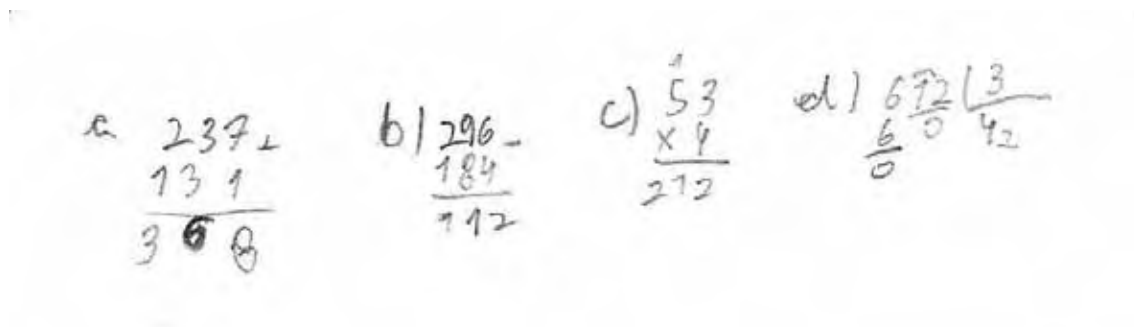 a 237+
131
368
b) 296-
184
112
c) 1
53
x 4
212
d) 612 | 3
6 0 42
0